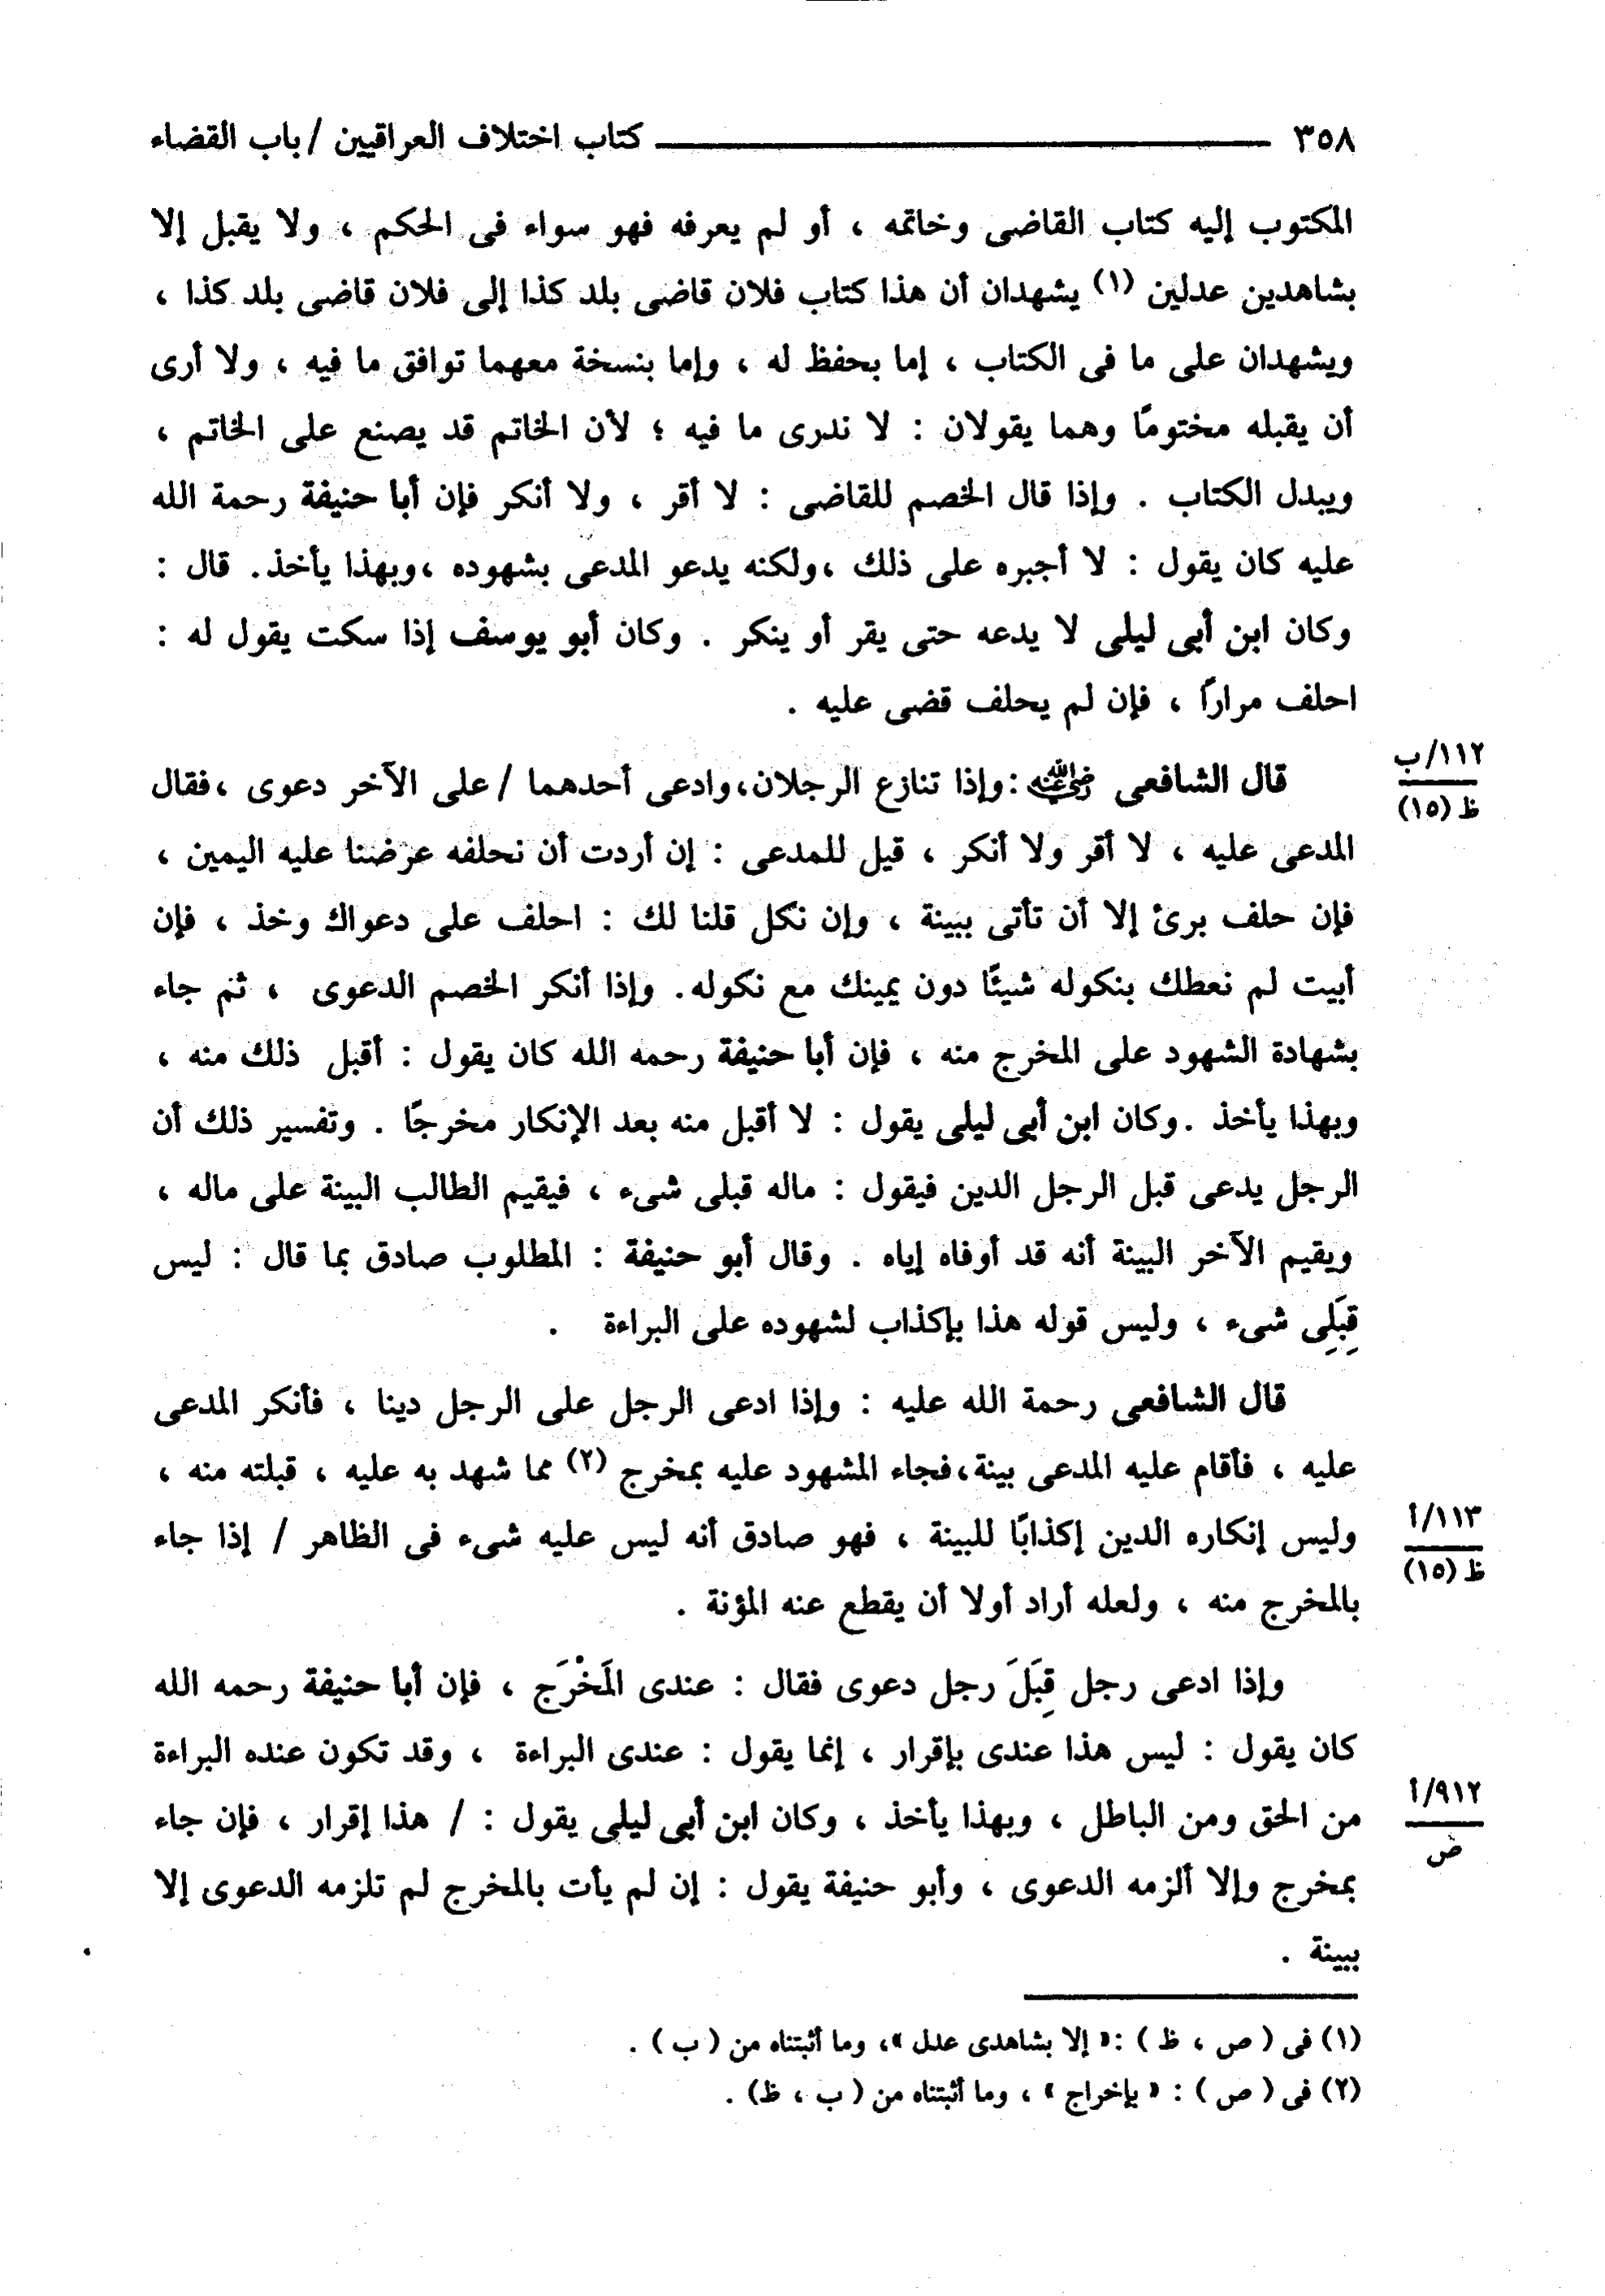 ٣٥٨ ــــــــــــــــ كتاب اختلاف العراقيين / باب القضاء
المكتوب إليه كتاب القاضى وخاتمه ، أو لم يعرفه فهو سواء فى الحكم ، ولا يقبل إلا
بشاهدين عدلين (١) يشهدان أن هذا كتاب فلان قاضى بلد كذا إلى فلان قاضى بلد كذا ،
ويشهدان على ما فى الكتاب ، إما بحفظ له ، وإما بنسخة معهما توافق ما فيه ، ولا أرى
أن يقبله مختومًا وهما يقولان : لا ندرى ما فيه ؛ لأن الخاتم قد يصنع على الخاتم ،
ويبدل الكتاب . وإذا قال الخصم للقاضى : لا أقر ، ولا أنكر فإن أبا حنيفة رحمة الله
عليه كان يقول : لا أجبره على ذلك ،ولكنه يدعو المدعى بشهوده ،وبهذا يأخذ. قال :
وكان ابن أبى ليلى لا يدعه حتى يقر أو ينكر . وكان أبو يوسف إذا سكت يقول له :
احلف مرارًا ، فإن لم يحلف قضى عليه .
١١٢/ب
ظ (١٥)
قال الشافعى رضي الله عنه :وإذا تنازع الرجلان،وادعى أحدهما / على الآخر دعوى ،فقال
المدعى عليه ، لا أقر ولا أنكر ، قيل للمدعى : إن أردت أن نحلفه عرضنا عليه اليمين ،
فإن حلف برئ إلا أن تأتى ببينة ، وإن نكل قلنا لك : احلف على دعواك وخذ ، فإن
أبيت لم نعطك بنكوله شيئًا دون يمينك مع نكوله. وإذا أنكر الخصم الدعوى ، ثم جاء
بشهادة الشهود على المخرج منه ، فإن أبا حنيفة رحمه الله كان يقول : أقبل ذلك منه ،
وبهذا يأخذ .وكان ابن أبى ليلى يقول : لا أقبل منه بعد الإنكار مخرجًا . وتفسير ذلك أن
الرجل يدعى قبل الرجل الدين فيقول : ماله قبلى شىء ، فيقيم الطالب البينة على ماله ،
ويقيم الآخر البينة أنه قد أوفاه إياه . وقال أبو حنيفة : المطلوب صادق بما قال : ليس
قِبَلِى شىء ، وليس قوله هذا بإكذاب لشهوده على البراءة .
قال الشافعى رحمة الله عليه : وإذا ادعى الرجل على الرجل دينا ، فأنكر المدعى
عليه ، فأقام عليه المدعى بينة،فجاء المشهود عليه بمخرج (٢) مما شهد به عليه ، قبلته منه ،
١١٣/أ
ظ (١٥)
وليس إنكاره الدين إكذابًا للبينة ، فهو صادق أنه ليس عليه شىء فى الظاهر / إذا جاء
بالمخرج منه ، ولعله أراد أولا أن يقطع عنه المؤنة .
وإذا ادعى رجل قِبَلَ رجل دعوى فقال : عندى المَخْرَج ، فإن أبا حنيفة رحمه الله
كان يقول : ليس هذا عندى بإقرار ، إنما يقول : عندى البراءة ، وقد تكون عنده البراءة
٩١٢/أ
ص
من الحق ومن الباطل ، وبهذا يأخذ ، وكان ابن أبى ليلى يقول : / هذا إقرار ، فإن جاء
بمخرج وإلا ألزمه الدعوى ، وأبو حنيفة يقول : إن لم يأت بالمخرج لم تلزمه الدعوى إلا
ببينة .
(١) فى ( ص ، ظ ) :« إلا بشاهدى عدل »، وما أثبتناه من ( ب ) .
(٢) فى ( ص ) : « بإخراج » ، وما أثبتناه من ( ب ، ظ) .